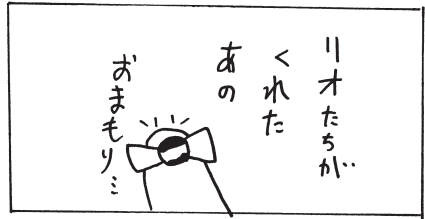 リオたちが
くれた
あの
おまもり…